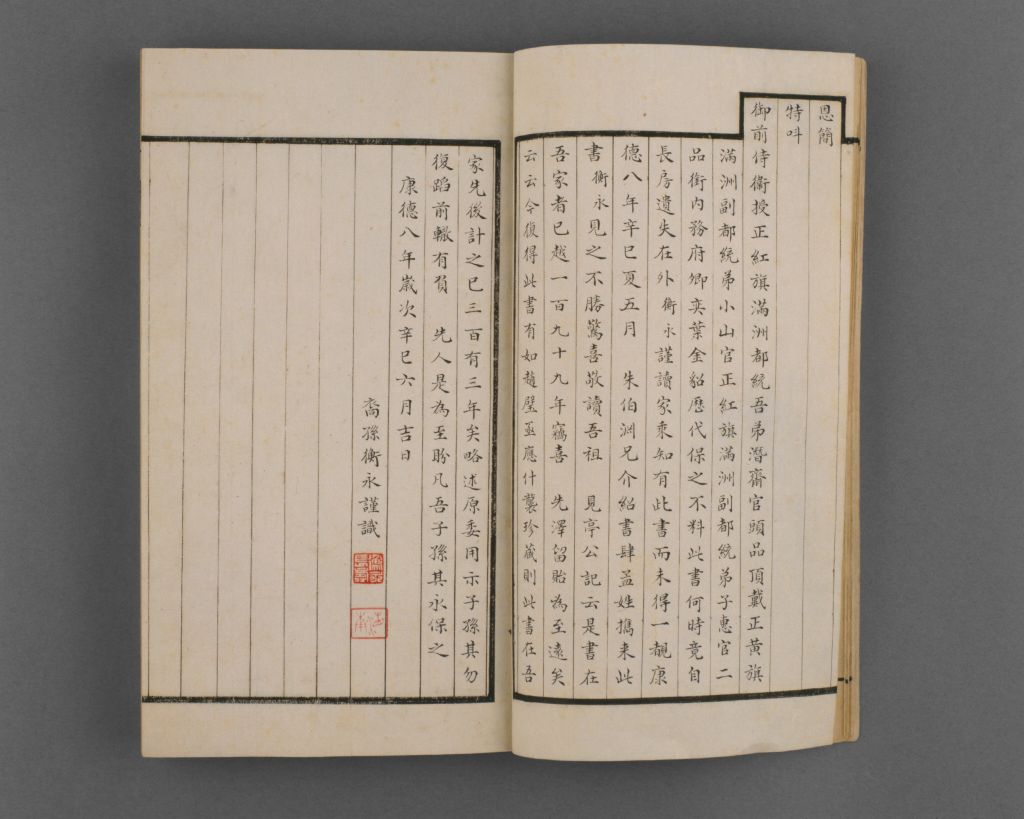 恩簡
特叫
御前侍衞授正紅旗滿洲都統吾弟潛齋官頭品頂戴正黃旗
滿洲副都統弟小山官正紅旗滿洲副都統弟子惠官二
品銜內務府卿奕葉金貂歷代保之不料此書何時竟自
長房遺失在外衡永謹讀家乘知有此書而未得一覩康
德八年辛巳夏五月 朱伯渊兄介紹書肆孟姓攜来此
書衡永見之不勝驚喜敬讀吾祖 見亭公記云是書在
吾家者已越一百九十九年竊喜 先澤留貽為至遠矣
云云今復得此書有如趙璧亟應什襲珍藏則此書在吾
家先後計之已三百有三年矣略述原委用示子孫其勿
復蹈前轍有負 先人是為至盼凡吾子孫其永保之
康德八年歲次辛巳六月吉日
裔孫衡永謹識